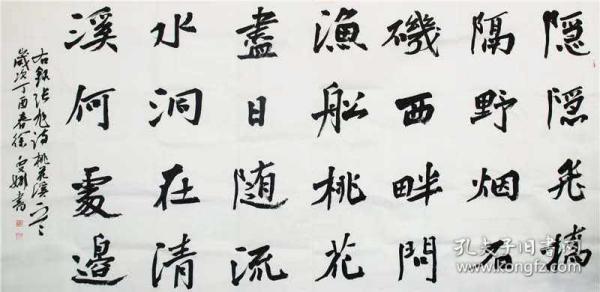 隐隐飛橋
隔野烟石
磯西畔問
渔船桃花
盡日随流
水洞在清
溪何處邊
右録张旭诗桃花溪
歲次丁酉春徐書
孔夫子旧书网
www.kongfz.com